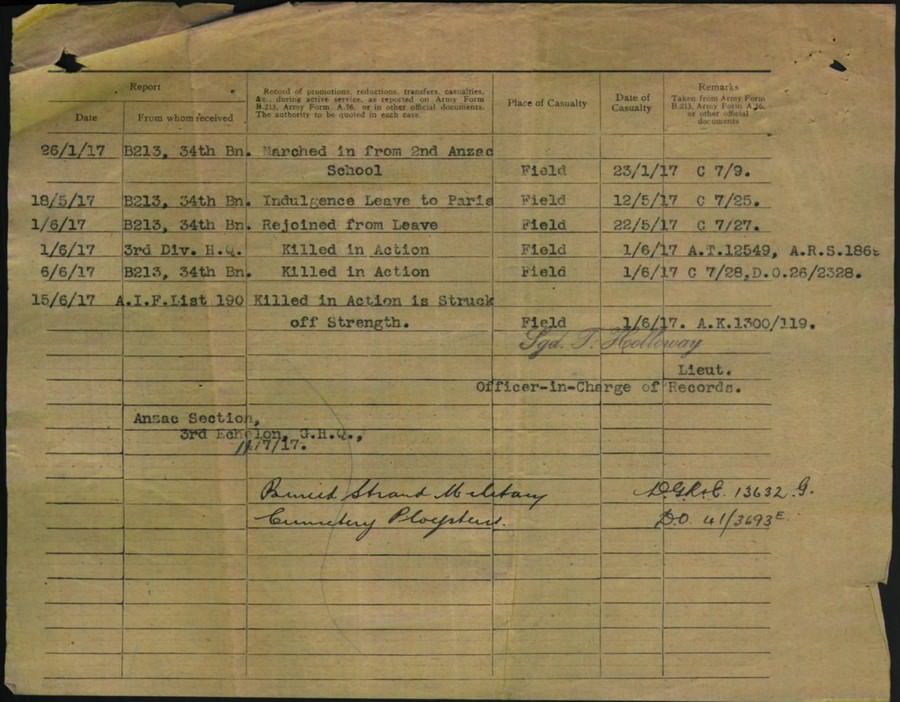 Report
Record of promotions, reductions, transfers, casualties,
&c., during active service, as reported on Army Form
B.213, Army Form A.36, or in other official documents.
The authority to be quoted in each case.
Place of Casualty
Date of
Casualty
Remarks
Taken from Army Form
B.213, Army Form A.36,
or other official
documents
Date From whom received
26/1/17 B213, 34th Bn. Marched in from 2nd Anzac
School Field 23/1/17 C 7/9.
18/5/17 B213, 34th Bn. Indulgence Leave to Paris Field 12/5/17 C 7/25.
1/6/17 B213, 34th Bn. Rejoined from Leave Field 22/5/17 C 7/27.
1/6/17 3rd Div. H.Q. Killed in Action Field 1/6/17 A.T.12549, A.R.S.186
6/6/17 B213, 34th Bn. Killed in Action Field 1/6/17 C 7/28,D.O.26/2328.
15/6/17 A.I.F.List 190 Killed in Action is Struck
off Strength. Field 1/6/17. A.K.1300/119.
Sgd. T. Holloway
Lieut.
Officer-in-Charge of Records.
Anzac Section,
3rd Echelon, G.H.Q.,
/7/17.
Buried Strand Military D.G.R.&E. 13632 G.
Cemetery Ploegsteert. D.O. 41/3693E